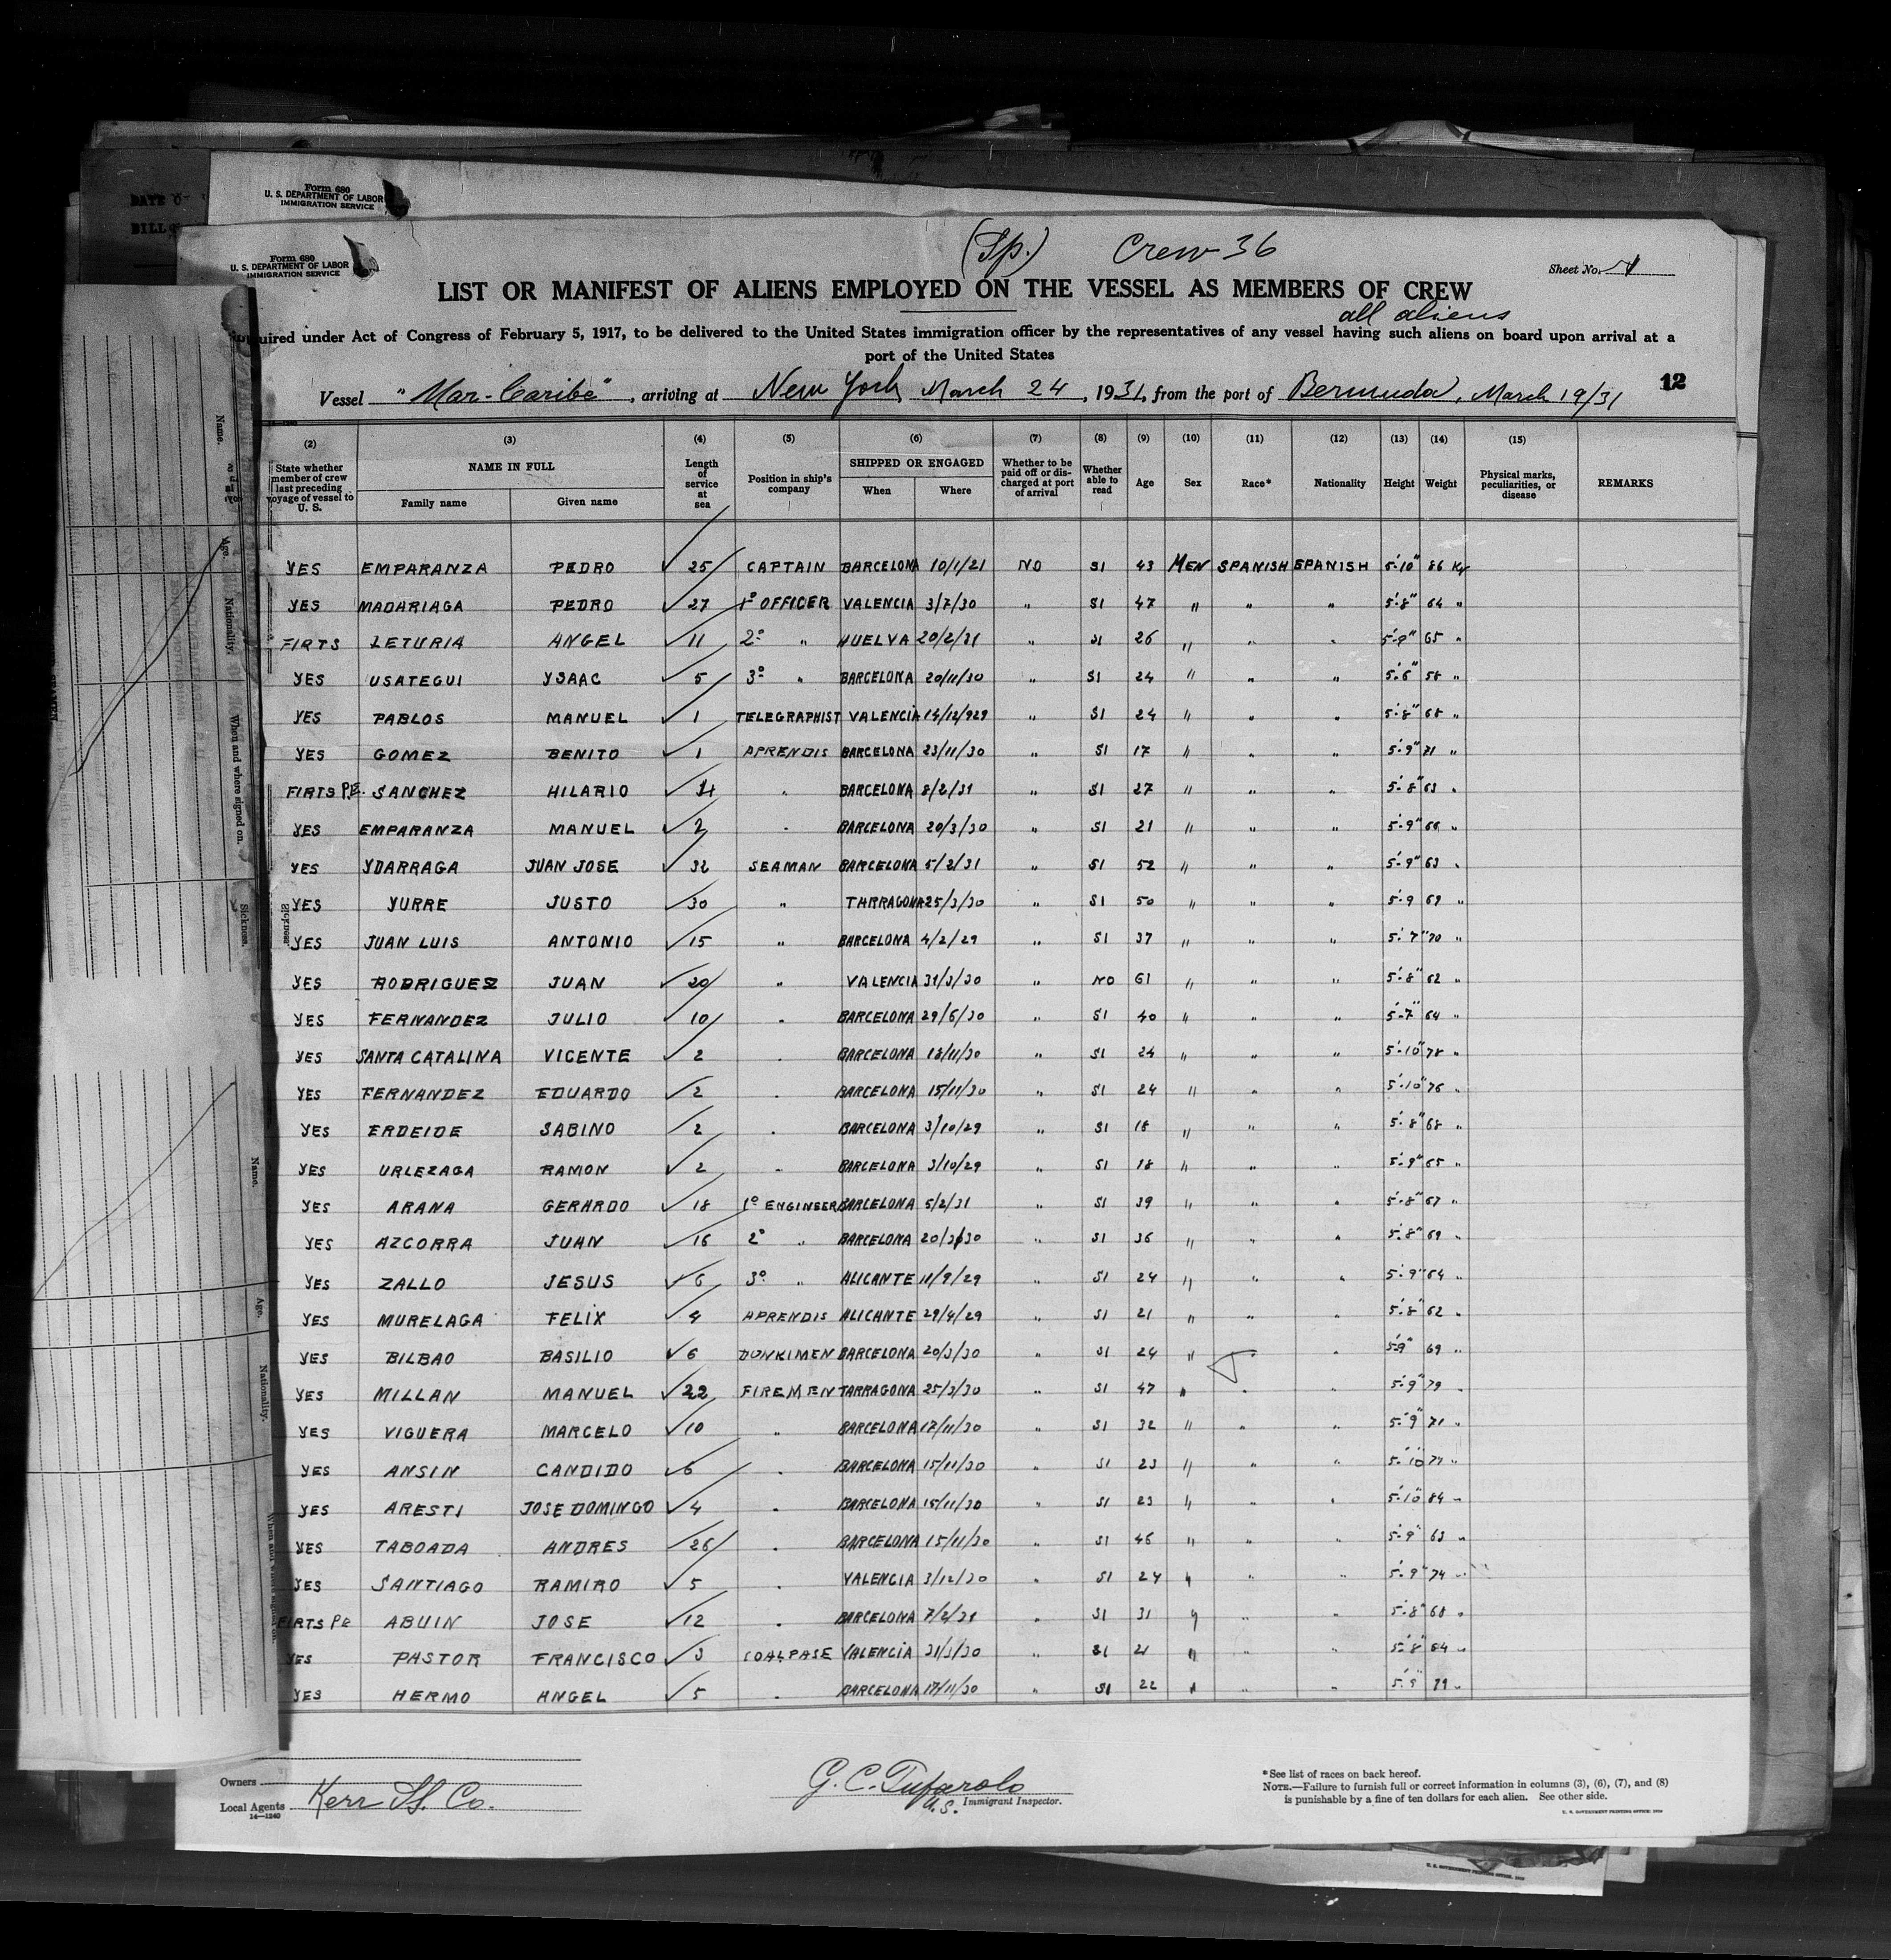 DATE
BILL
Form 680
U. S. DEPARTMENT OF LABOR
IMMIGRATION SERVICE
Form 680
U. S. DEPARTMENT OF LABOR
IMMIGRATION SERVICE
(Sp.) Crew 36
Sheet No.
LIST OR MANIFEST OF ALIENS EMPLOYED ON THE VESSEL AS MEMBERS OF CREW
all aliens
quired under Act of Congress of February 5, 1917, to be delivered to the United States immigration officer by the representatives of any vessel having such aliens on board upon arrival at a
port of the United States
12
Vessel "Mar-Caribe", arriving at New York March 24, 1931, from the port of Bermuda, March 19/31
(2) (3) (4) (5) (6) (7) (8) (9) (10) (11) (12) (13) (14) (15)
State whether member of crew last preceding voyage of vessel to U. S.
NAME IN FULL
Family name
Given name
Length of service at sea
Position in ship's company
SHIPPED OR ENGAGED
When
Where
Whether to be paid off or discharged at port of arrival
Whether able to read
Age
Sex
Race*
Nationality
Height
Weight
Physical marks, peculiarities, or disease
REMARKS
YES EMPARANZA PEDRO 25 CAPTAIN BARCELONA 10/1/21 NO SI 43 MEN SPANISH SPANISH 5'-10" 86 Kg
YES MADARIAGA PEDRO 27 1º OFFICER VALENCIA 3/7/30 " SI 47 " " " 5'-8" 64 "
FIRTS LETURIA ANGEL 11 2º " HUELVA 20/2/31 " SI 26 " " " 5'-9" 65 "
YES USATEGUI YSAAC 5 3º " BARCELONA 20/11/30 " SI 24 " " " 5'-6" 58 "
YES PABLOS MANUEL 1 TELEGRAPHIST VALENCIA 14/12/929 " SI 24 " " " 5'-8" 68 "
YES GOMEZ BENITO 1 APRENDIS BARCELONA 23/11/30 " SI 17 " " " 5'-9" 71 "
FIRTS PE. SANCHEZ HILARIO " BARCELONA 8/2/31 " SI 27 " " " 5'-8" 63 "
YES EMPARANZA MANUEL 2 " BARCELONA 20/3/30 " SI 21 " " " 5'-9" 66 "
YES YDARRAGA JUAN JOSE 32 SEAMAN BARCELONA 5/2/31 " SI 52 " " " 5'-9" 63 "
YES YURRE JUSTO 30 " TARRAGONA 25/3/30 " SI 50 " " " 5-9 69 "
YES JUAN LUIS ANTONIO 15 " BARCELONA 4/2/29 " SI 37 " " " 5'-7" 70 "
YES RODRIGUEZ JUAN 20 " VALENCIA 31/3/30 " NO 61 " " " 5'-8" 62 "
YES FERNANDEZ JULIO 10 " BARCELONA 29/6/30 " SI 40 " " " 5'-7" 64 "
YES SANTA CATALINA VICENTE 2 " BARCELONA 18/11/30 " SI 24 " " " 5'-10" 78 "
YES FERNANDEZ EDUARDO 2 " BARCELONA 15/11/30 " SI 24 " " " 5'-10" 76 "
YES ERDEIDE SABINO 2 " BARCELONA 3/10/29 " SI 18 " " " 5'-8" 68 "
YES URLEZAGA RAMON 2 " BARCELONA 3/10/29 " SI 18 " " " 5'-9" 65 "
YES ARANA GERARDO 18 1º ENGINEER BARCELONA 5/2/31 " SI 39 " " " 5'-8" 67 "
YES AZCORRA JUAN 16 2º " BARCELONA 20/3/30 " SI 36 " " " 5'-8" 69 "
YES ZALLO JESUS 6 3º " ALICANTE 11/9/29 " SI 24 " " " 5'-9" 64 "
YES MURELAGA FELIX 4 APRENDIS ALICANTE 29/4/29 " SI 21 " " " 5'-8" 62 "
YES BILBAO BASILIO 6 DONKIMEN BARCELONA 20/3/30 " SI 24 " " " 5'-9" 69 "
YES MILLAN MANUEL 22 FIREMEN TARRAGONA 25/3/30 " SI 47 " " " 5'-9" 79 "
YES VIGUERA MARCELO 10 " BARCELONA 17/11/30 " SI 32 " " " 5'-9" 71 "
YES ANSIN CANDIDO 6 " BARCELONA 15/11/30 " SI 23 " " " 5'-10 "
YES ARESTI JOSE DOMINGO 4 " BARCELONA 15/11/30 " SI 23 " " " 5'-10" 84 "
YES TABOADA ANDRES 26 " BARCELONA 15/11/30 " SI 46 " " " 5'-9" 63 "
YES SANTIAGO RAMIRO 5 " VALENCIA 3/12/30 " SI 24 " " " 5'-9" 74 "
FIRTS PE ABUIN JOSE 12 " BARCELONA 7/2/31 " SI 31 " " " 5'-8" 68 "
YES PASTOR FRANCISCO 3 COALPASE VALENCIA 31/3/30 " SI 21 " " " 5'-8" 64 "
YES HERMO ANGEL 5 " BARCELONA 17/11/30 " SI 22 " " " 79 "
Owners
Local Agents Kerr SS. Co.
14—1240
G. C. Tufarolo
U.S. Immigrant Inspector.
*See list of races on back hereof.
NOTE.—Failure to furnish full or correct information in columns (3), (6), (7), and (8)
is punishable by a fine of ten dollars for each alien. See other side.
U. S. GOVERNMENT PRINTING OFFICE: 1930
Name.
Age.
Nationality.
When and where signed on.
Sickness.
Sickness.
Name.
Age.
Nationality.